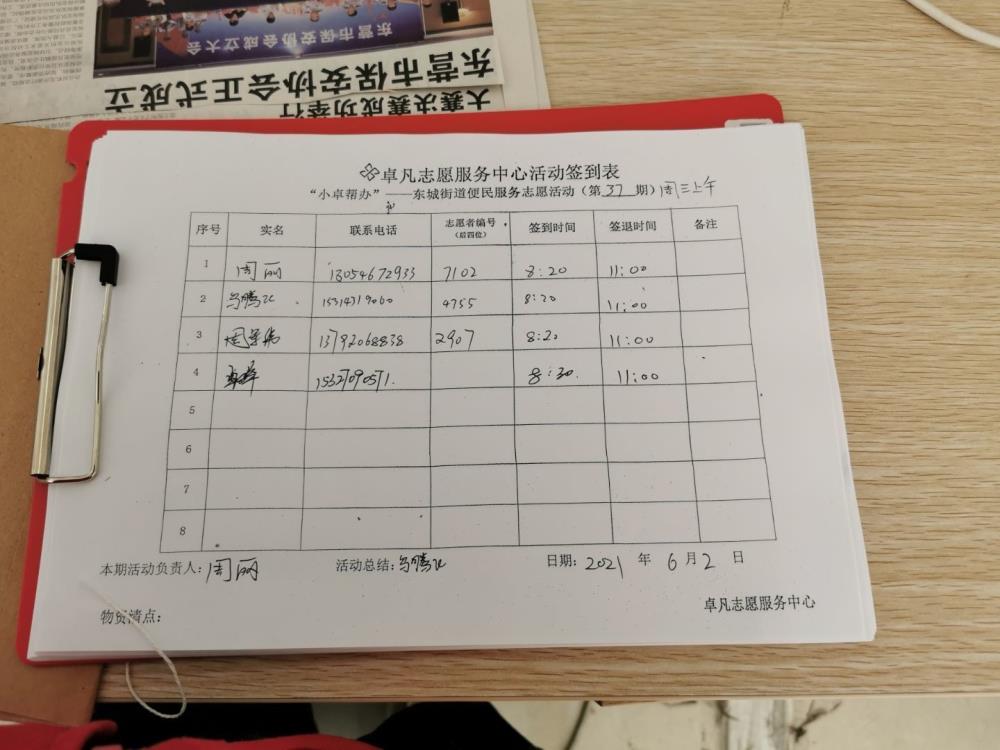 东营市保安协会成立大会
东营市保安协会正式成立
大赛决赛成功举行
卓凡志愿服务中心活动签到表
“小卓帮办”——东城街道便民服务志愿活动（第 37 期）周三上午
序号 实名 联系电话 志愿者编号（后四位） 签到时间 签退时间 备注
1 周丽 13054672933 7102 8:20 11:00
2 4755 8:20 11:00
3 13792068838 2907 8:20 11:00
4 8:30. 11:00
5
6
7
8
本期活动负责人：周丽 活动总结： 日期：2021 年 6 月 2 日
物资清点： 卓凡志愿服务中心